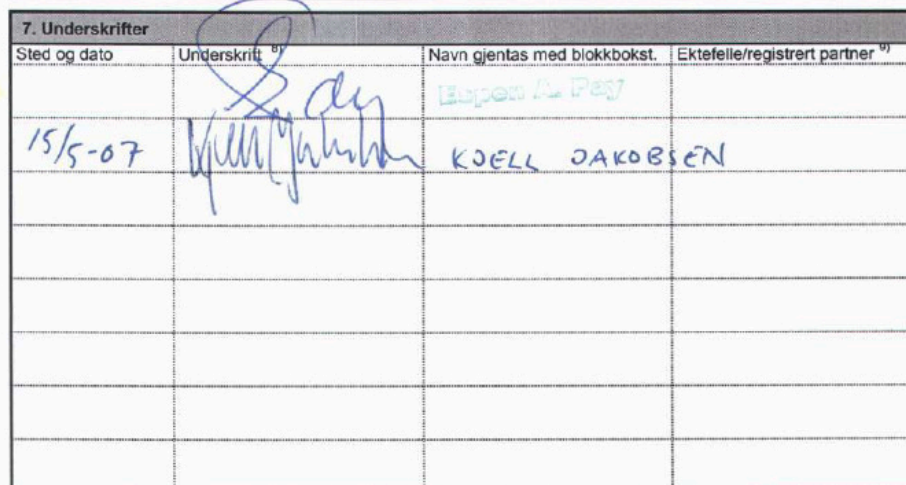 7. Underskrifter
Sted og dato Underskrift 8) Navn gjentas med blokkbokst. Ektefelle/registrert partner 9)
Espen A. Pay
15/5-07 KJELL JAKOBSEN